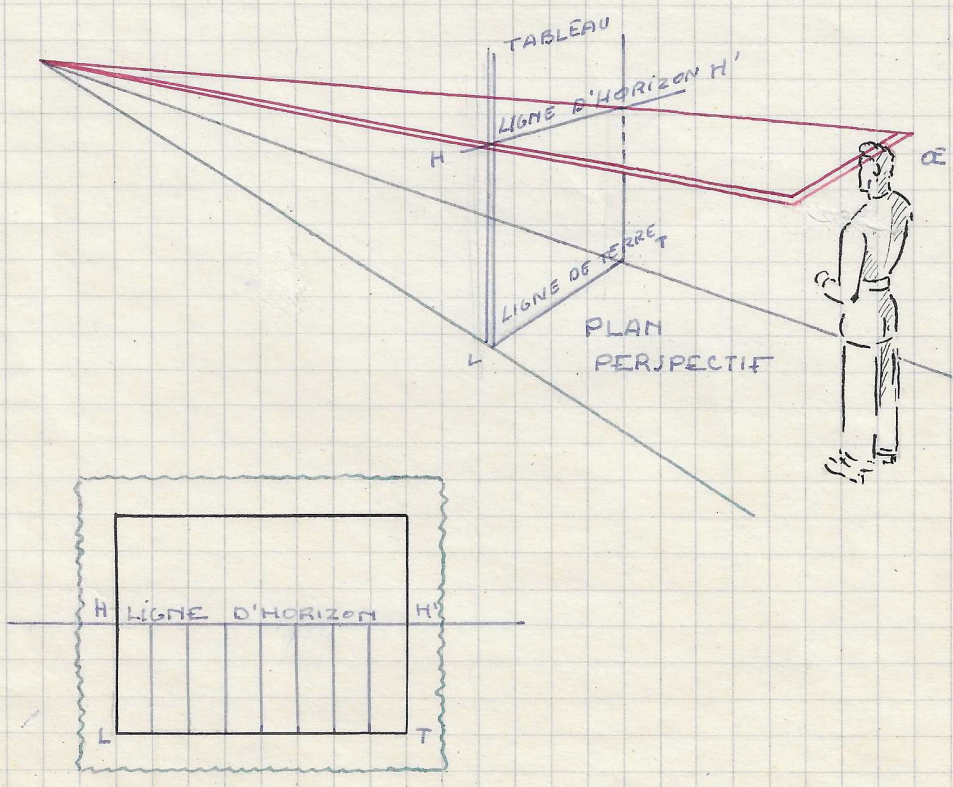 TABLEAU
LIGNE D'HORIZON H'
H
Œ
LIGNE DE TERRE T
L
PLAN
PERSPECTIF
H LIGNE D'HORIZON H'
L T